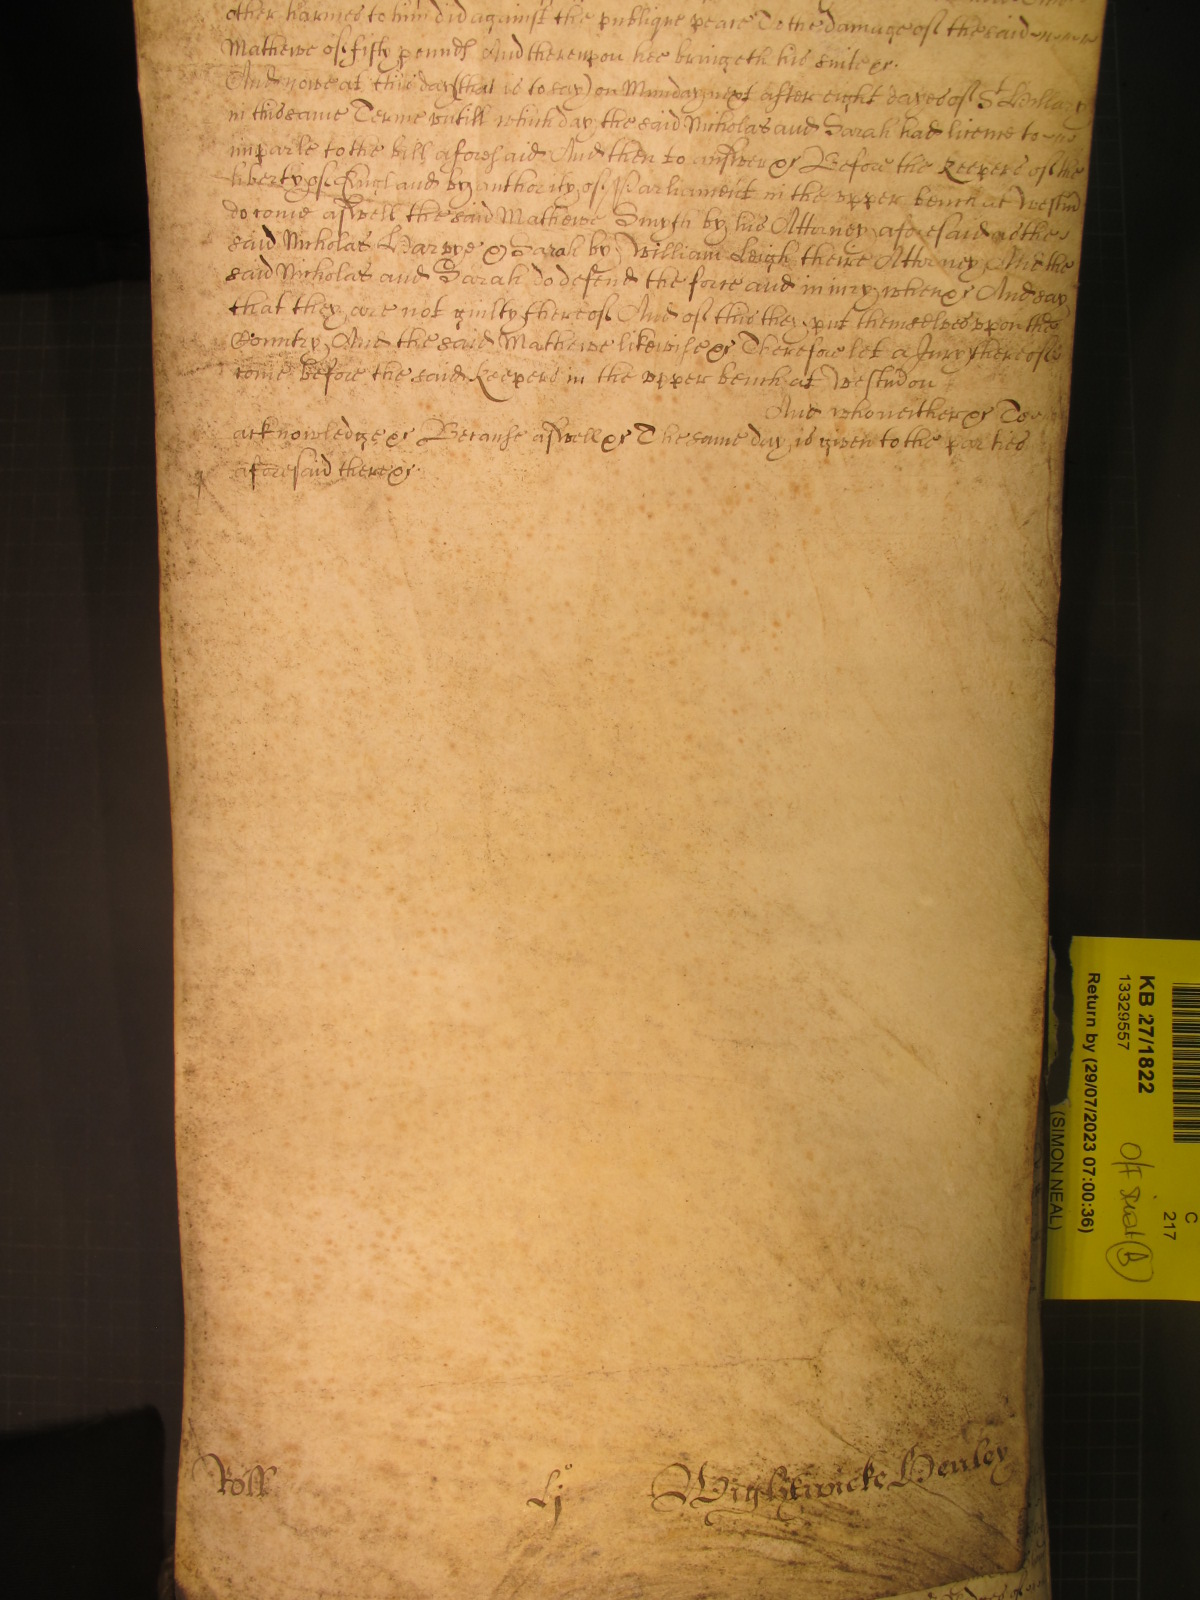 other harmes to him did against the publique peace To the damage of the said
Mathewe of fifty pounds And thereupon hee bringeth his suite &c.
And nowe at this day (that is to say) on Munday next after eight dayes of St Hillary
in this same Terme untill which day the said Nicholas and Sarah had licence to
imparle to the bill aforesaid And then to answer &c Before the Keepers of the
liberty of England by authority of Parliament in the upper bench at Westm
do come aswell the said Mathewe Smyth by his Attorney aforesaid as the
said Nicholas Harpye & Sarah by William Leigh theire Attorney And the
said Nicholas and Sarah do defend the force and iniury when &c And say
that they are not guilty thereof And of this they put themselves upon the
Country And the said Mathewe likewise &c Therefore let a Jury thereof
come before the said Keepers in the upper bench at Westm on
And who neither &c To
acknowledge &c Because aswell &c The same day is given to the parties
aforesaid there &c
Roll
Lj o
Wightwicke Henley
KB 27/1822
13329557
Return by (29/07/2023 07:00:36)
(SIMON NEAL)
C
217